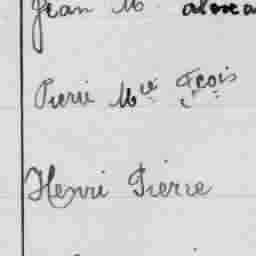 Jean M.
Pierre Mce Fçois
Henri Pierre